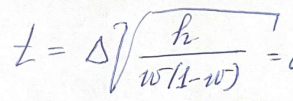 t = Δ √(h / w(1-w)) =